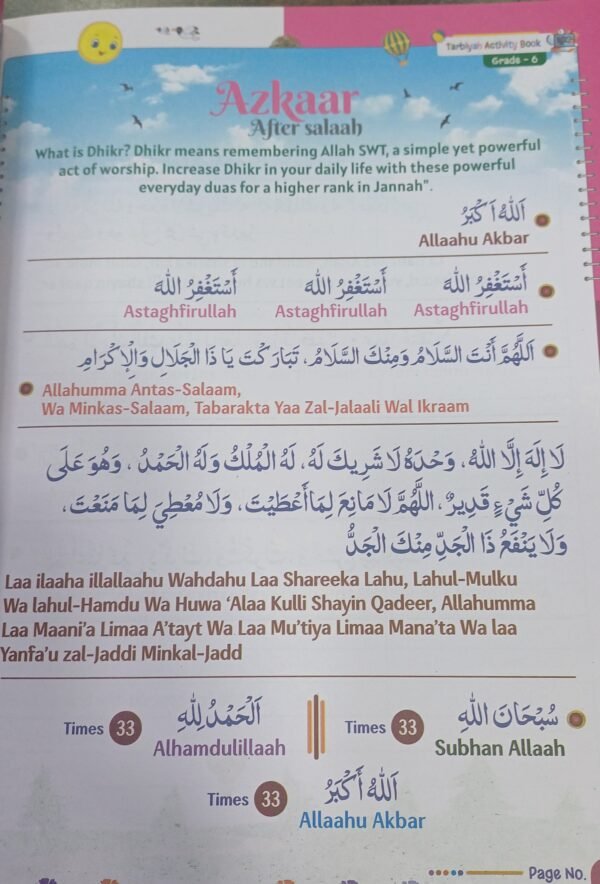 Tarbiyah Activity Book
Grade - 6
Azkaar
After salaah
What is Dhikr? Dhikr means remembering Allah SWT, a simple yet powerful
act of worship. Increase Dhikr in your daily life with these powerful
everyday duas for a higher rank in Jannah".
اَللّٰهُ اَكْبَرُ
Allaahu Akbar
أَسْتَغْفِرُ اللّٰهَ أَسْتَغْفِرُ اللّٰهَ أَسْتَغْفِرُ اللّٰهَ
Astaghfirullah Astaghfirullah Astaghfirullah
اَللّٰهُمَّ أَنْتَ السَّلَامُ وَمِنْكَ السَّلَامُ، تَبَارَكْتَ يَا ذَا الْجَلَالِ وَالْإِكْرَامِ
Allahumma Antas-Salaam,
Wa Minkas-Salaam, Tabarakta Yaa Zal-Jalaali Wal Ikraam
لَا إِلَهَ إِلَّا اللّٰهُ، وَحْدَهُ لَا شَرِيكَ لَهُ، لَهُ الْمُلْكُ وَلَهُ الْحَمْدُ، وَهُوَ عَلَى
كُلِّ شَيْءٍ قَدِيرٌ، اللَّهُمَّ لَا مَانِعَ لِمَا أَعْطَيْتَ، وَلَا مُعْطِيَ لِمَا مَنَعْتَ،
وَلَا يَنْفَعُ ذَا الْجَدِّ مِنْكَ الْجَدُّ
Laa ilaaha illallaahu Wahdahu Laa Shareeka Lahu, Lahul-Mulku
Wa lahul-Hamdu Wa Huwa ‘Alaa Kulli Shayin Qadeer, Allahumma
Laa Maani’a Limaa A’tayt Wa Laa Mu’tiya Limaa Mana’ta Wa laa
Yanfa’u zal-Jaddi Minkal-Jadd
سُبْحَانَ اللّٰهِ
Times 33
Subhan Allaah
اَلْحَمْدُ لِلّٰهِ
Times 33
Alhamdulillaah
اَللّٰهُ أَكْبَرُ
Times 33
Allaahu Akbar
Page No.